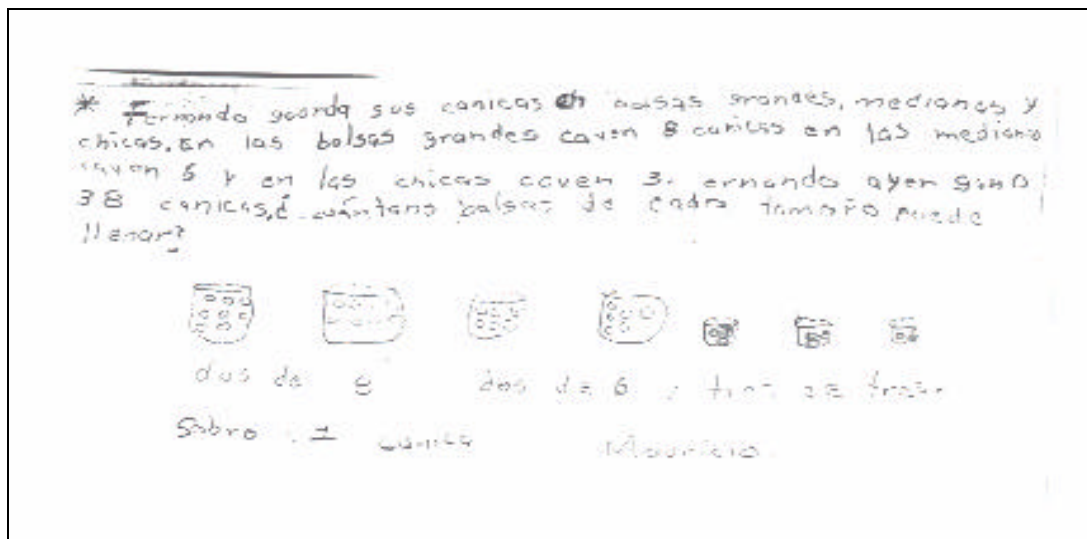 * Fernando guarda sus canicas en bolsas grandes, medianas y
chicas. En las bolsas grandes caven 8 canicas en las mediana
caven 6 y en las chicas caven 3. ernando ayer gano
38 canicas,¿ cuántans bolsas de cada tamaño puede
llenar?
dos de 8 dos de 6 y tres de tres.
Sobro 1 canica Mauricio